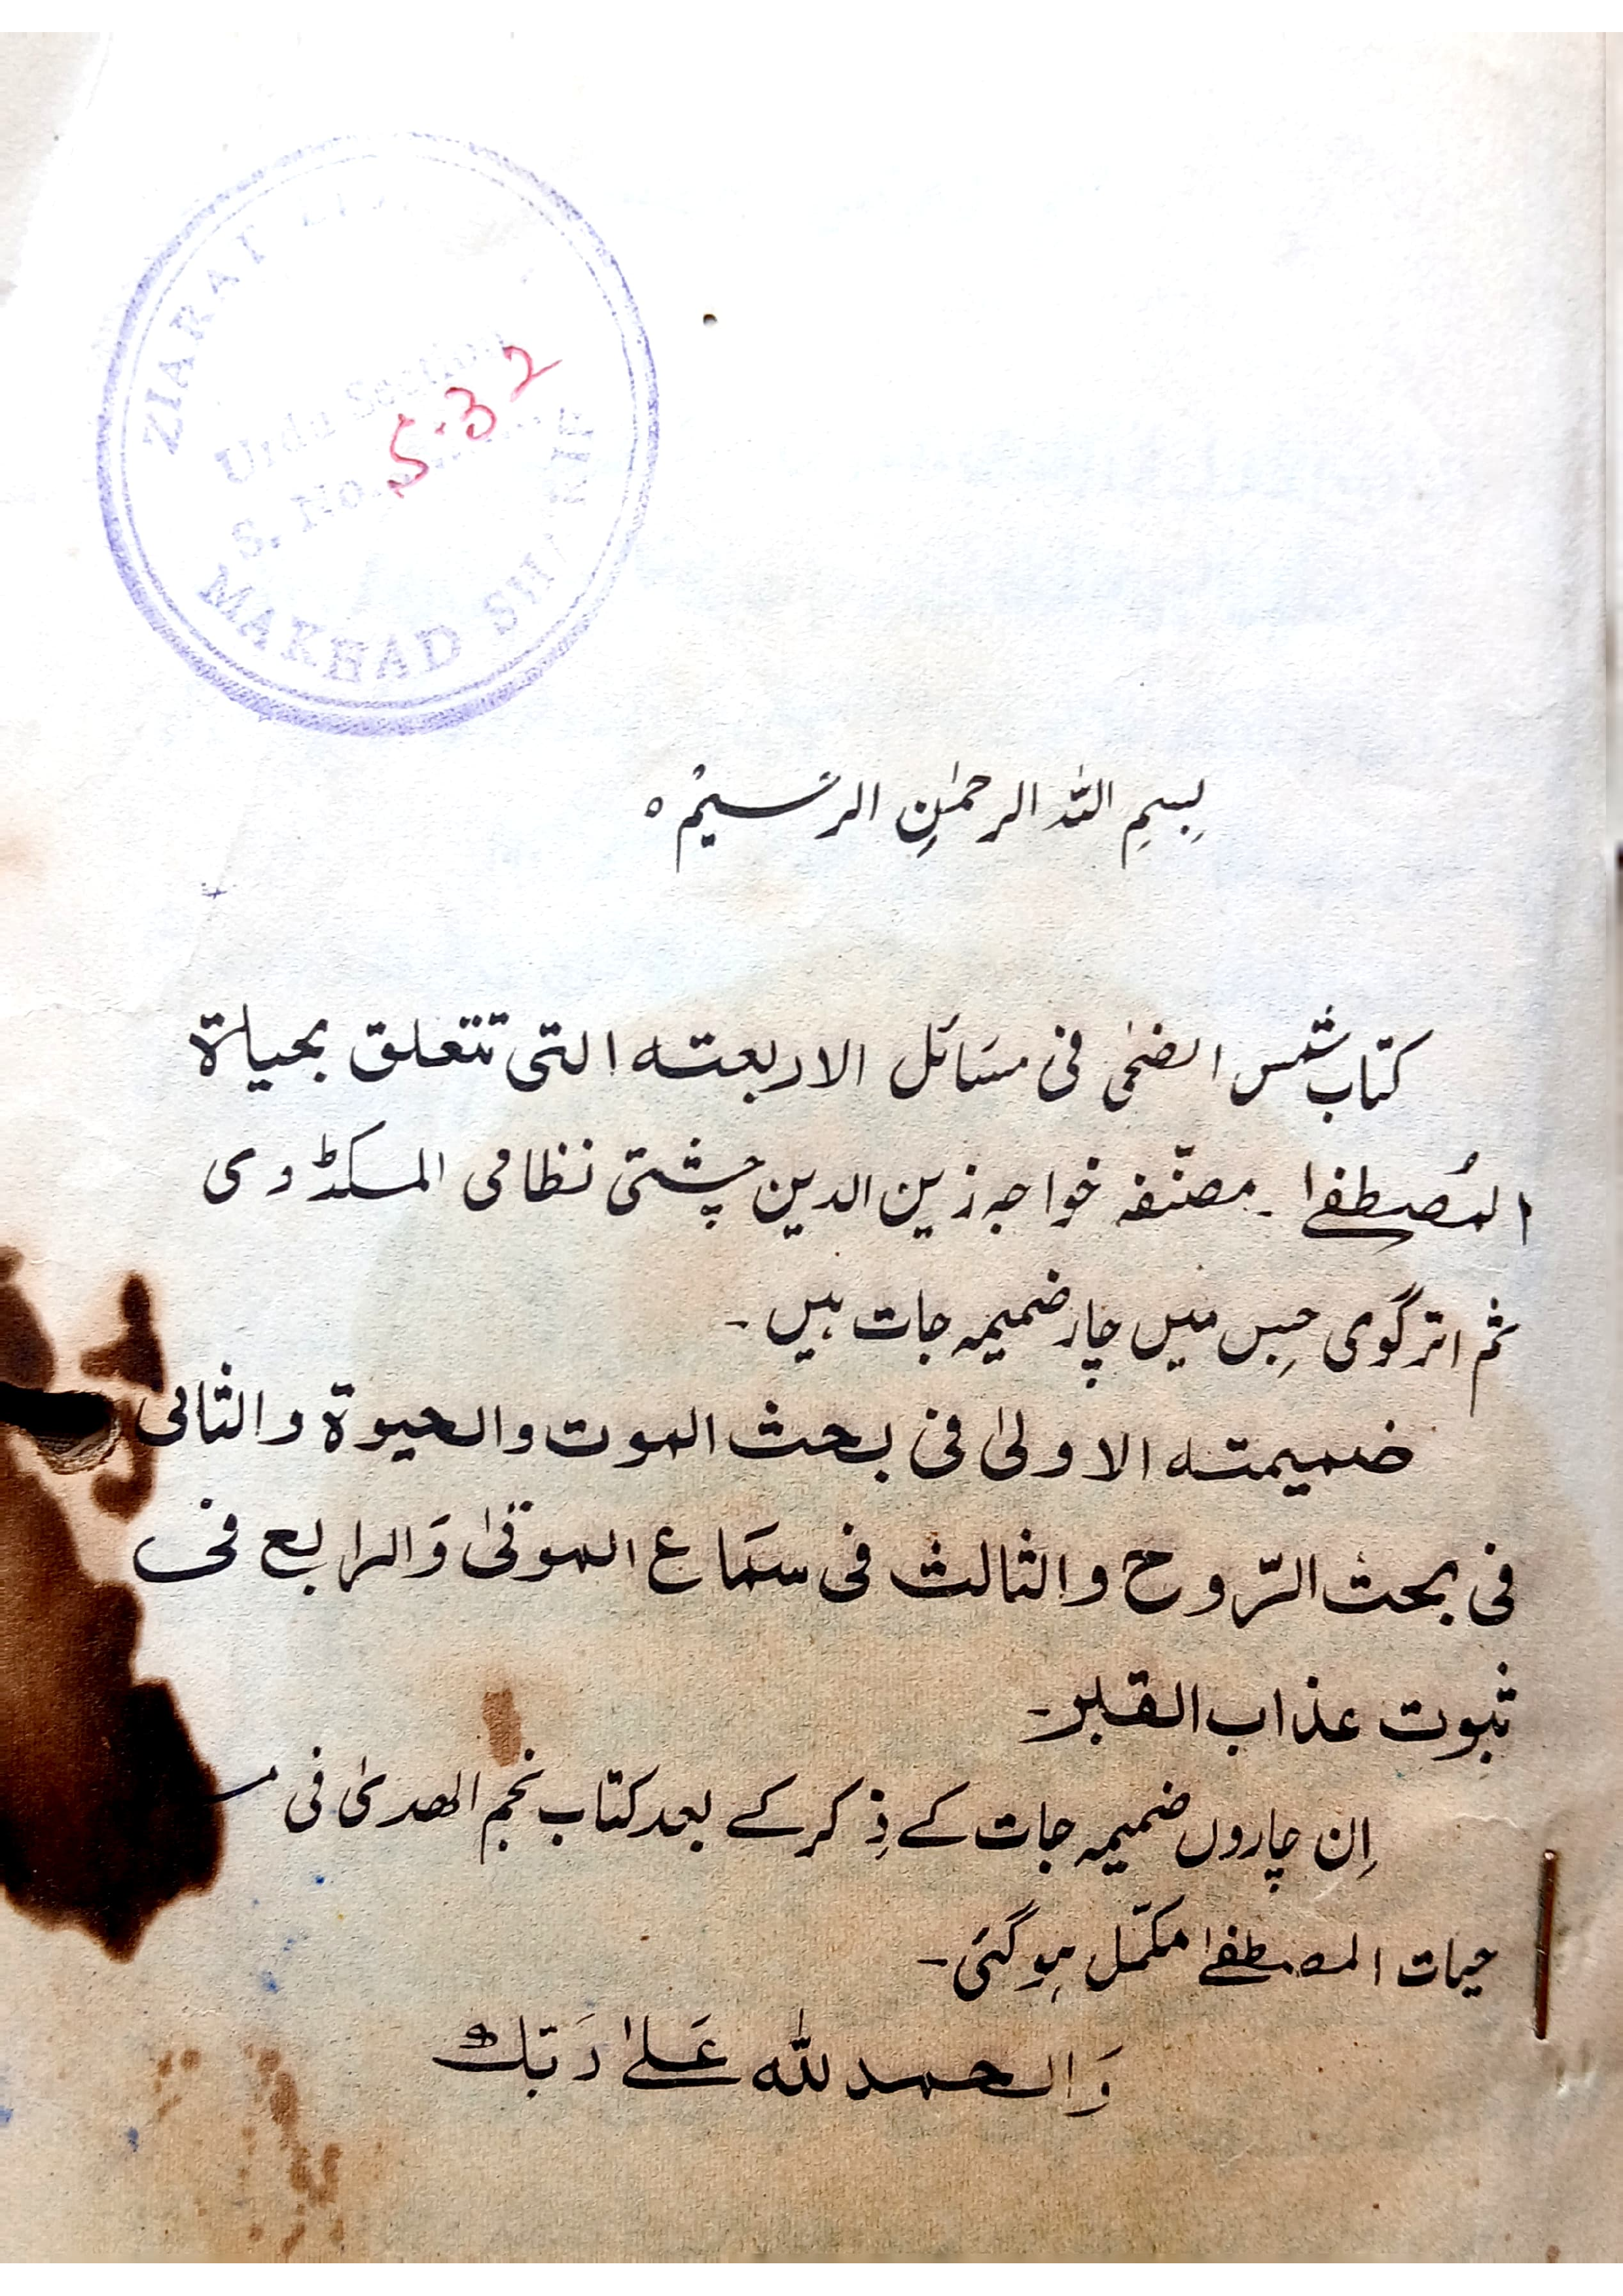 ZIARAT
Urdu Section
S. No. 532
MAKHAD SHARIF
بِسمِ اللہ الرحمٰنِ الرَّحِیْم ہ
کتاب شمس الضحٰی فی مسَائل الاربعتہ التی تتعلق بحیاۃ
المُصطفےٰ ۔ مصنّفہ خواجہ زین الدین چشتی نظامی المکڈوی
ثم اترگوی جِس میں چار ضمیمہ جات ہیں ۔
ضمیمتہ الاولیٰ فی بحث الموت والحیوۃ والثانی
فی بحث الرّوح والثالث فی سمَاع الموتیٰ وَالرابع فی
ثبوت عذاب القبر۔
اِن چاروں ضمیمہ جات کے ذِکر کے بعد کتاب نجم الھدیٰ فی
حیات المصطفےٰ مکمّل ہوگئی ۔
وَالحمد للہ عَلیٰ ذَٰلِکَ